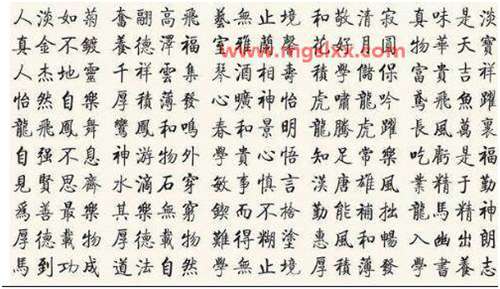 人淡如菊 奮翮高飛 藝無止境 和敬清寂 真味是淡
真金不鍍 養德澤福 室雅蘭馨 花好月圓 物華天寶
www.mgslxx.com
人杰地靈 千祥雲集 琴酒 壽 學儲 富貴吉祥
怡然自樂 厚積薄發 心曠神怡 虎嘯龍吟 鳶飛魚躍
龍飛鳳舞 鸞鳳和鳴 春和景明 龍騰虎躍 長風萬裏
自强不息 神游物外 學貴心悟 知足常樂 吃虧是福
見賢思齊 水滴石穿 敏事慎言 漢唐雄風 業精于勤
爲善最樂 其樂無窮 鍥而不捨 勤能補拙 龍馬精神
厚德載物 厚德載物 難得糊塗 惠風和暢 入幽出朗
馬到功成 道法自然 學無止境 厚積薄發 學書養志